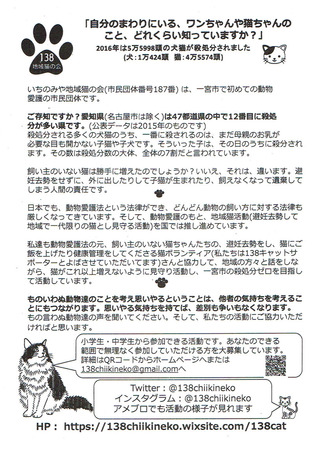 「自分のまわりにいる、ワンちゃんや猫ちゃんの
こと、どれくらい知っていますか？」
138
地域猫の会
2016年は5万5998頭の犬猫が殺処分されました
(犬：1万424頭　猫：4万5574頭)
いちのみや地域猫の会(市民団体番号187番）は、一宮市で初めての動物
愛護の市民団体です。
ご存知ですか？愛知県(名古屋市は除く)は47都道県の中で12番目に殺処
分が多い県です。(公表データは2015年のものです)
殺処分される多くの犬猫のうち、一番に殺されるのは、まだ母親のお乳が
必要な目も開かない子猫や子犬です。そういった子は、その日のうちに殺分さ
れます。その数は殺処分数の大体、全体の7割だと言われています。
飼い主のいない猫は勝手に増えたのでしょうか？いいえ、それは、違います。避
妊去勢をせずに、外に出したりして子猫が生まれたり、飼えなくなって遺棄して
しまう人間の責任です。
日本でも、動物愛護法という法律ができ、どんどん動物の飼い方に対する法律も
厳しくなってきています。そして、動物愛護のもと、地域猫活動(避妊去勢して
地域で一代限りの猫とし見守る活動)を国では推し進めています。
私達も動物愛護法の元、飼い主のいない猫ちゃんたちの、避妊去勢をし、猫にご
飯を上げたり健康管理をしてくださる猫ボランティア(私たちは138キャットサ
ポーターとよばさせていただいてます)さんと協力して、地域の方々と話をしな
がら、猫がこれ以上増えないように見守り活動し、一宮市の殺処分ゼロを目指し
て活動しています。
ものいわぬ動物達のことを考え思いやるということは、他者の気持ちを考えるこ
とにもつながります。思いやる気持ちを持てば、差別も争いもなくなります。
もの言わぬ動物の声を聞いてください。そして、私たちの活動にご協力いただ
ければと思います。
小学生・中学生から参加できる活動です。あなたのできる
範囲で無理なく参加していただける方を大募集しています。
詳細はQRコードからホームページへまたは
138chiikineko@gmail.comへ
Twitter：@138chiikineko
インスタグラム：@138chiikineko
アメブロでも活動の様子が見れます
HP： https://138chiikineko.wixsite.com/138cat